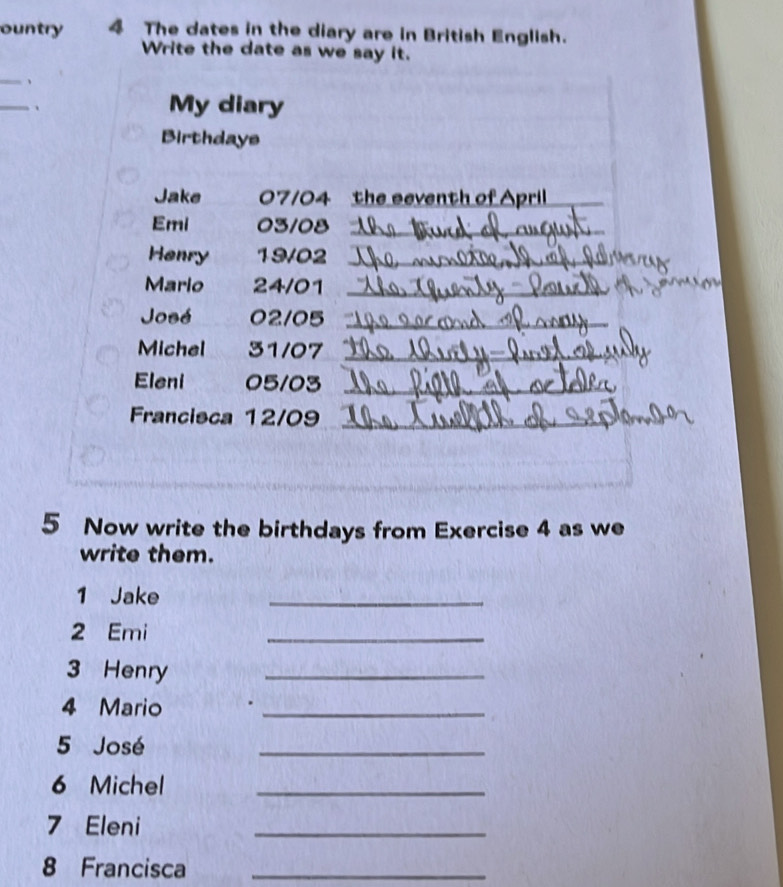 ountry 4 The dates in the diary are in British English.
Write the date as we say it.
My diary
Birthdays
Jake 07/04 the seventh of April
Emi 03/08 the third of august
Henry 19/02 The nineteenth of february
Mario 24/01 the Twenty-fourth of
José 02/05 the second of may
Michel 31/07 the thirty-first of july
Eleni 05/03 the fifth of october
Francisca 12/09 the Twelfth of september
5 Now write the birthdays from Exercise 4 as we
write them.
1 Jake
2 Emi
3 Henry
4 Mario
5 José
6 Michel
7 Eleni
8 Francisca